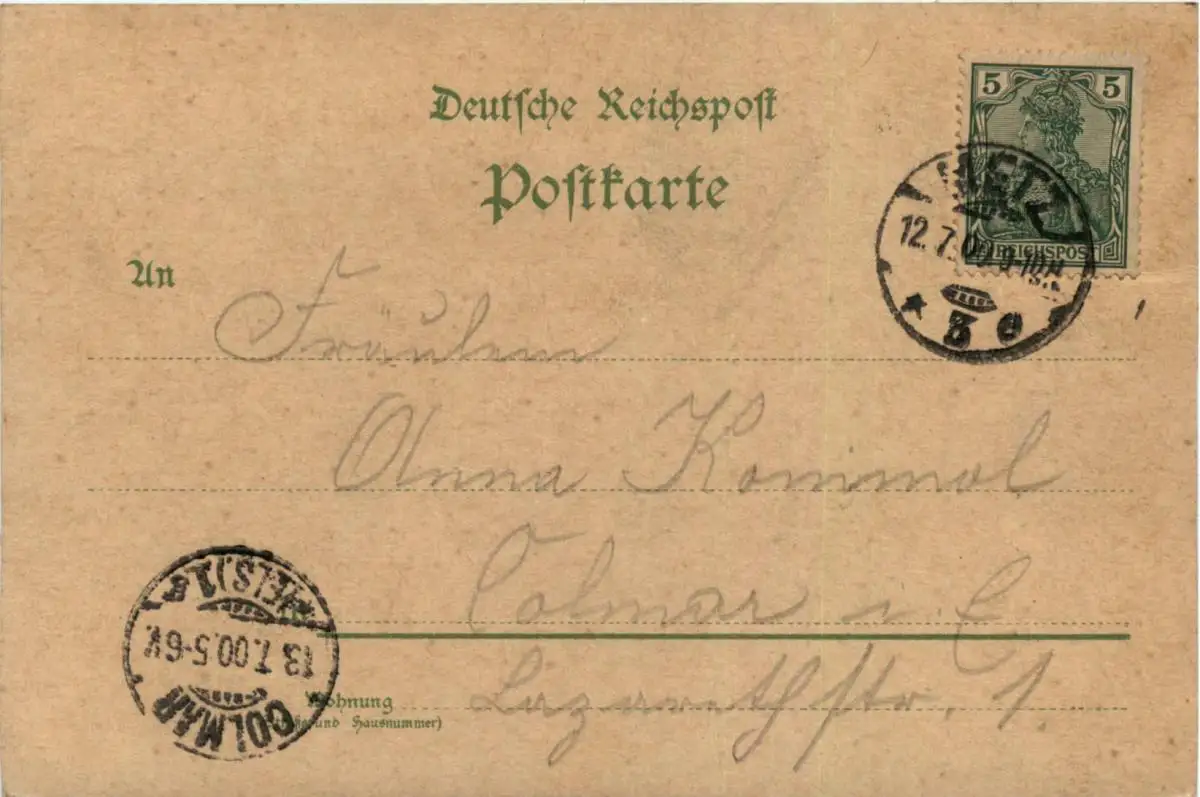 Deutsche Reichspost
Postkarte
5 5
REICHSPOST
METZ
12.7.00
* 3 e *
An
Fräulein
Anna Kommol
Colmar i. E.
Lazarethstr. 1.
Wohnung
und Hausnummer)
COLMAR
13.7.00.5-6V.
(ELS)1